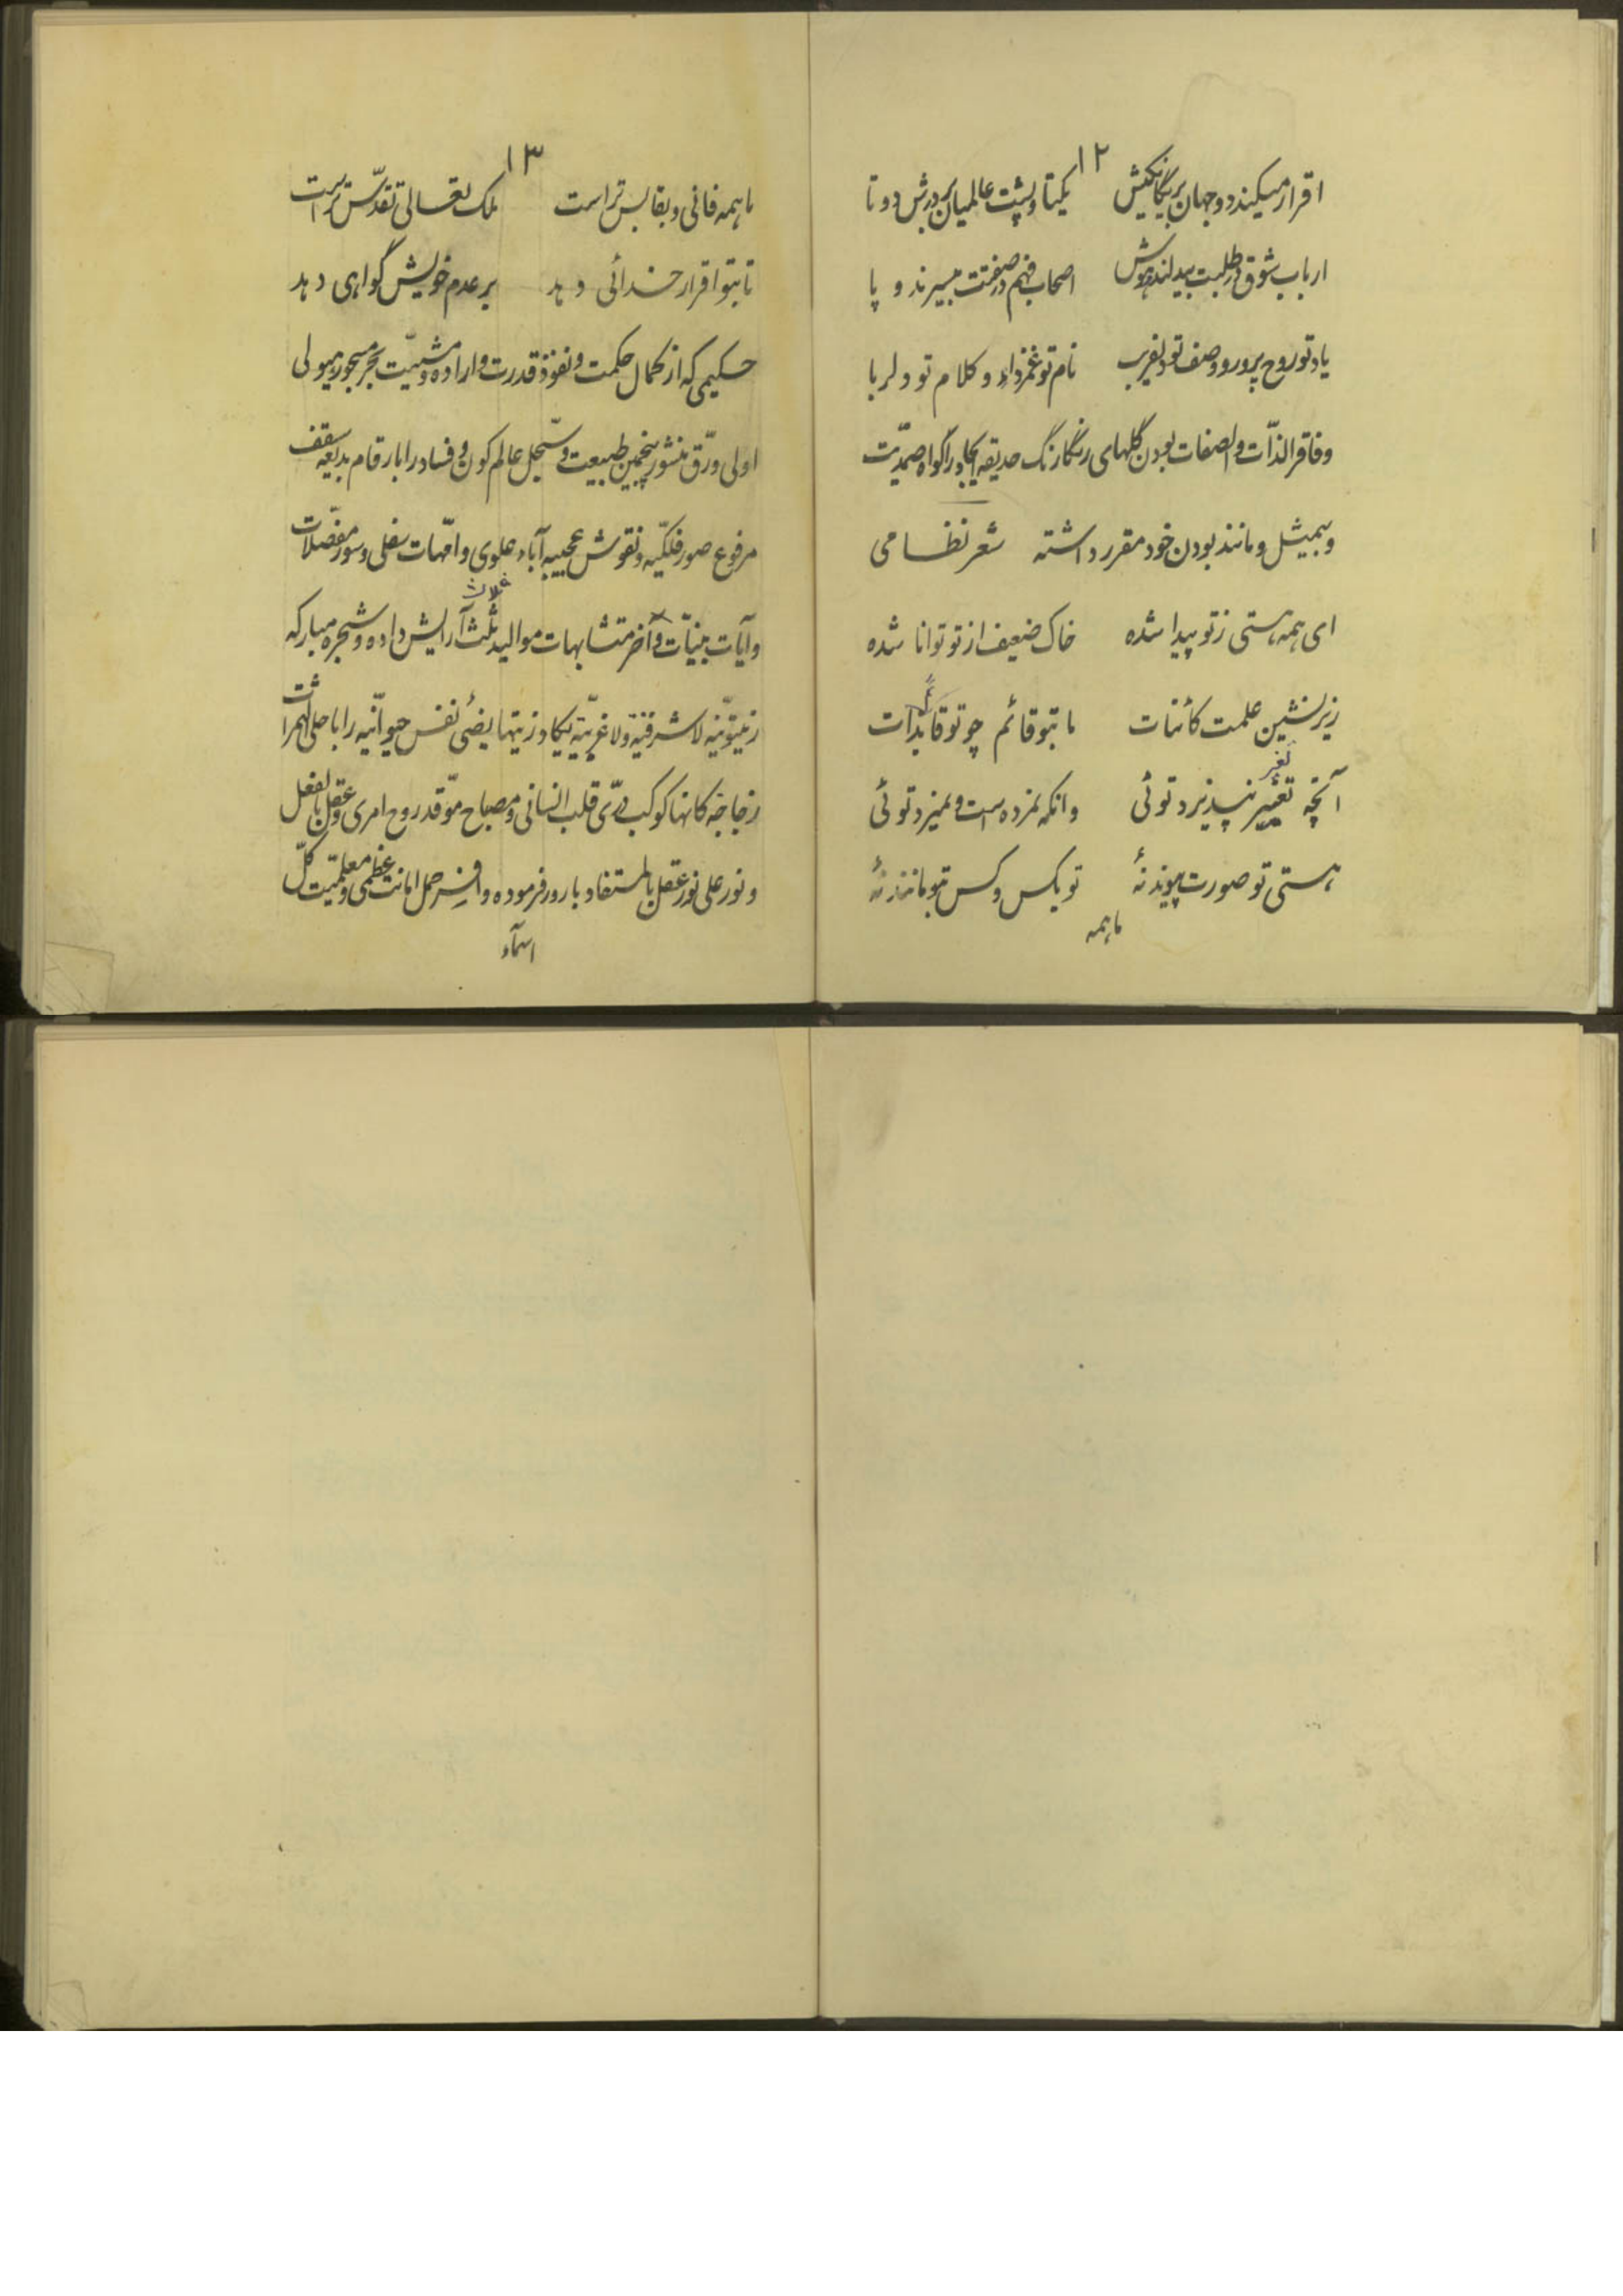 ۱۲
اقرار میکند دو جهان بر یگانگیش یکتا و پشت عالمیان بر درش دو تا
ارباب شوق در طلبت بیدلند و هوش اصحاب فهم در صفتت بیسرند و پا
یاد تو روح پرور و وصف تو دلفریب نام تو غمزدای و کلام تو دلربا
وفاقر الذّات والصفات بودن گلهای رنگارنگ حدیقه ایجاد را گواه صمدیّت
و بیمثل و مانند بودن خود مقرر داشته شعر نظامی
ای همه هستی ز تو پیدا شده خاک ضعیف از تو توانا شده
زیرنشین علمت کائنات ما بتو قائم چو تو قائم بذات
تغیر
آنچه تغییر نپذیرد توئی وانکه نمرده است و نمیرد توئی
هستی تو صورت پیوند نهٔ تو بکس و کس بتو مانند نهٔ
ما همه
۱۳
ما همه فانی و بقا بس تراست ملک تعالی و تقدّس تراست
تا بتو اقرار خدائی دهد بر عدم خویش گواهی دهد
حکیمی که از کمال حکمت و نفوذ قدرت و اراده و مشیّت بحر مسجور هیولی
اولی و رّق منشور پنجمین طبیعت و سجّل عالم کون و فساد را بارقام بدیعه سقف
مرفوع صور فلکیّه و نقوش عجیبه آباء علوی و امّهات سفلی و سور مفصّلات
ثلاث
و آیات بیّنات و اُخر متشابهات موالید ثلث آرایش داده و شجره مبارکه
زیتونیّه لا شرقیّه و لا غربیّه یکاد زیتها یضیٔ نفس حیوانیّه را با حلی الثمرات
زجاجه کانها کوکب درّی قلب انسانی و مصباح موّقد روح امری و عقل بالفعل
و نور علی نور عقل بالمستفاد بارور فرموده و افسر حمل امانت عظمی و معلمیّت کلّ
اسمآء